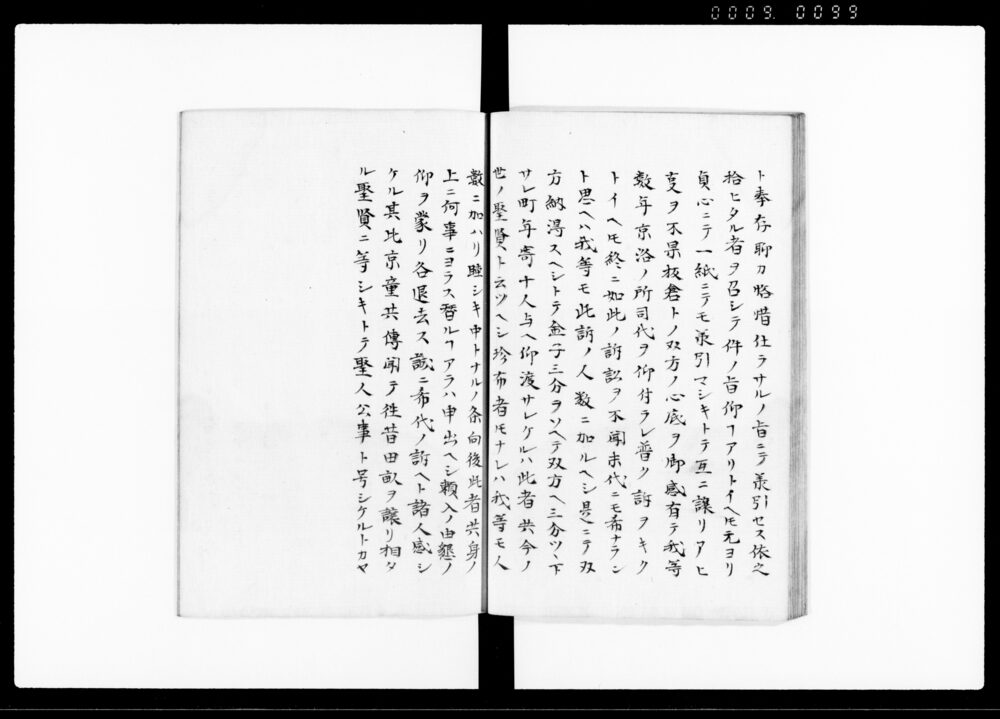 0009. 0099
ト奉存聊カ悋惜仕ラサルノ旨ニテ承引セス依之
拾ヒタル者ヲ召シテ件ノ旨仰ヿアリトイヘ𪜈元ヨリ
貞心ニテ一紙ニテモ承引マシキトテ互ニ譲リアヒ
更ヲ不果板倉トノ双方ノ心底ヲ御感有テ我等
数年京洛ノ所司代ヲ仰付ラレ普ク訴ヲキク
トイヘ𪜈終ニ如此ノ訴訟ヲ不聞末代ニモ希ナラン
ト思ヘハ我等モ此訴ノ人数ニ加ルヘシ是ニテ双
方納得スヘシトテ金子三分ヲソヘテ双方ヘ三分ツヽ下
サレ町年寄十人与ヘ仰渡サレケルハ此者共今ノ
世ノ聖賢ト云ツヘシ珍布者𪜈ナレハ我等モ人
数ニ加ハリ睦シキ中トナルノ条向後此者共身ノ
上ニ何事ニヨラス替ルヿアラハ申出ヘシ頼入ノ由懇ノ
仰ヲ蒙リ各退去ス誠ニ希代ノ訴ヘト諸人感シ
ケル其比京童共傳聞テ往昔田畝ヲ譲リ相タ
ル聖賢ニ等シキトテ聖人公事ト号シケルトカヤ